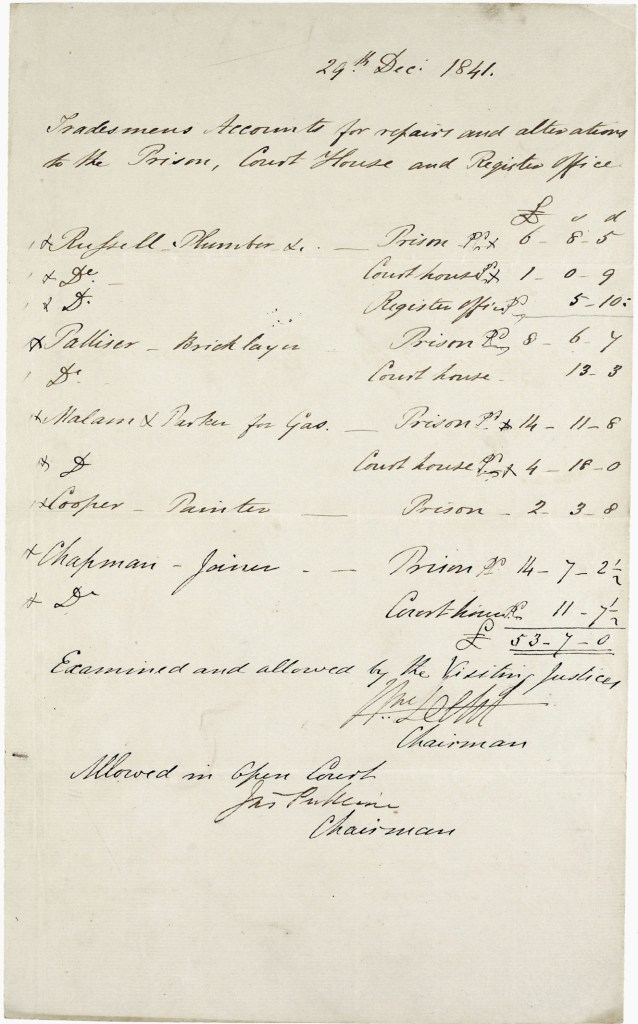 29.th Dec: 1841.
Tradesmens Accounts for repairs and alterations
to the Prison, Court House and Register Office
£ s d
x Russell Plumber &c. — Prison Pd x 6 - 8 - 5
x Do. — Court house Pd x 1 - 0 - 9
x Do. Register Office Pd 5 - 10:
x Palliser - Bricklayer Prison Pd 8 - 6 - 7
Do. Court house - 13 - 3
x Malam & Parker for Gas. — Prison Pd. x 14 - 11 - 8
x Do Court house Pd x 4 - 18 - 0
x Cooper - Painter — Prison - 2 - 3 - 8
x Chapman - Joiner - — Prison Pd 14 - 7 - 2½
x Do Court house Pd 11 - 7½
£ 53 - 7 - 0
Examined and allowed by the Visiting Justices
Chairman
Allowed in Open Court
Jas Pulleine
Chairman